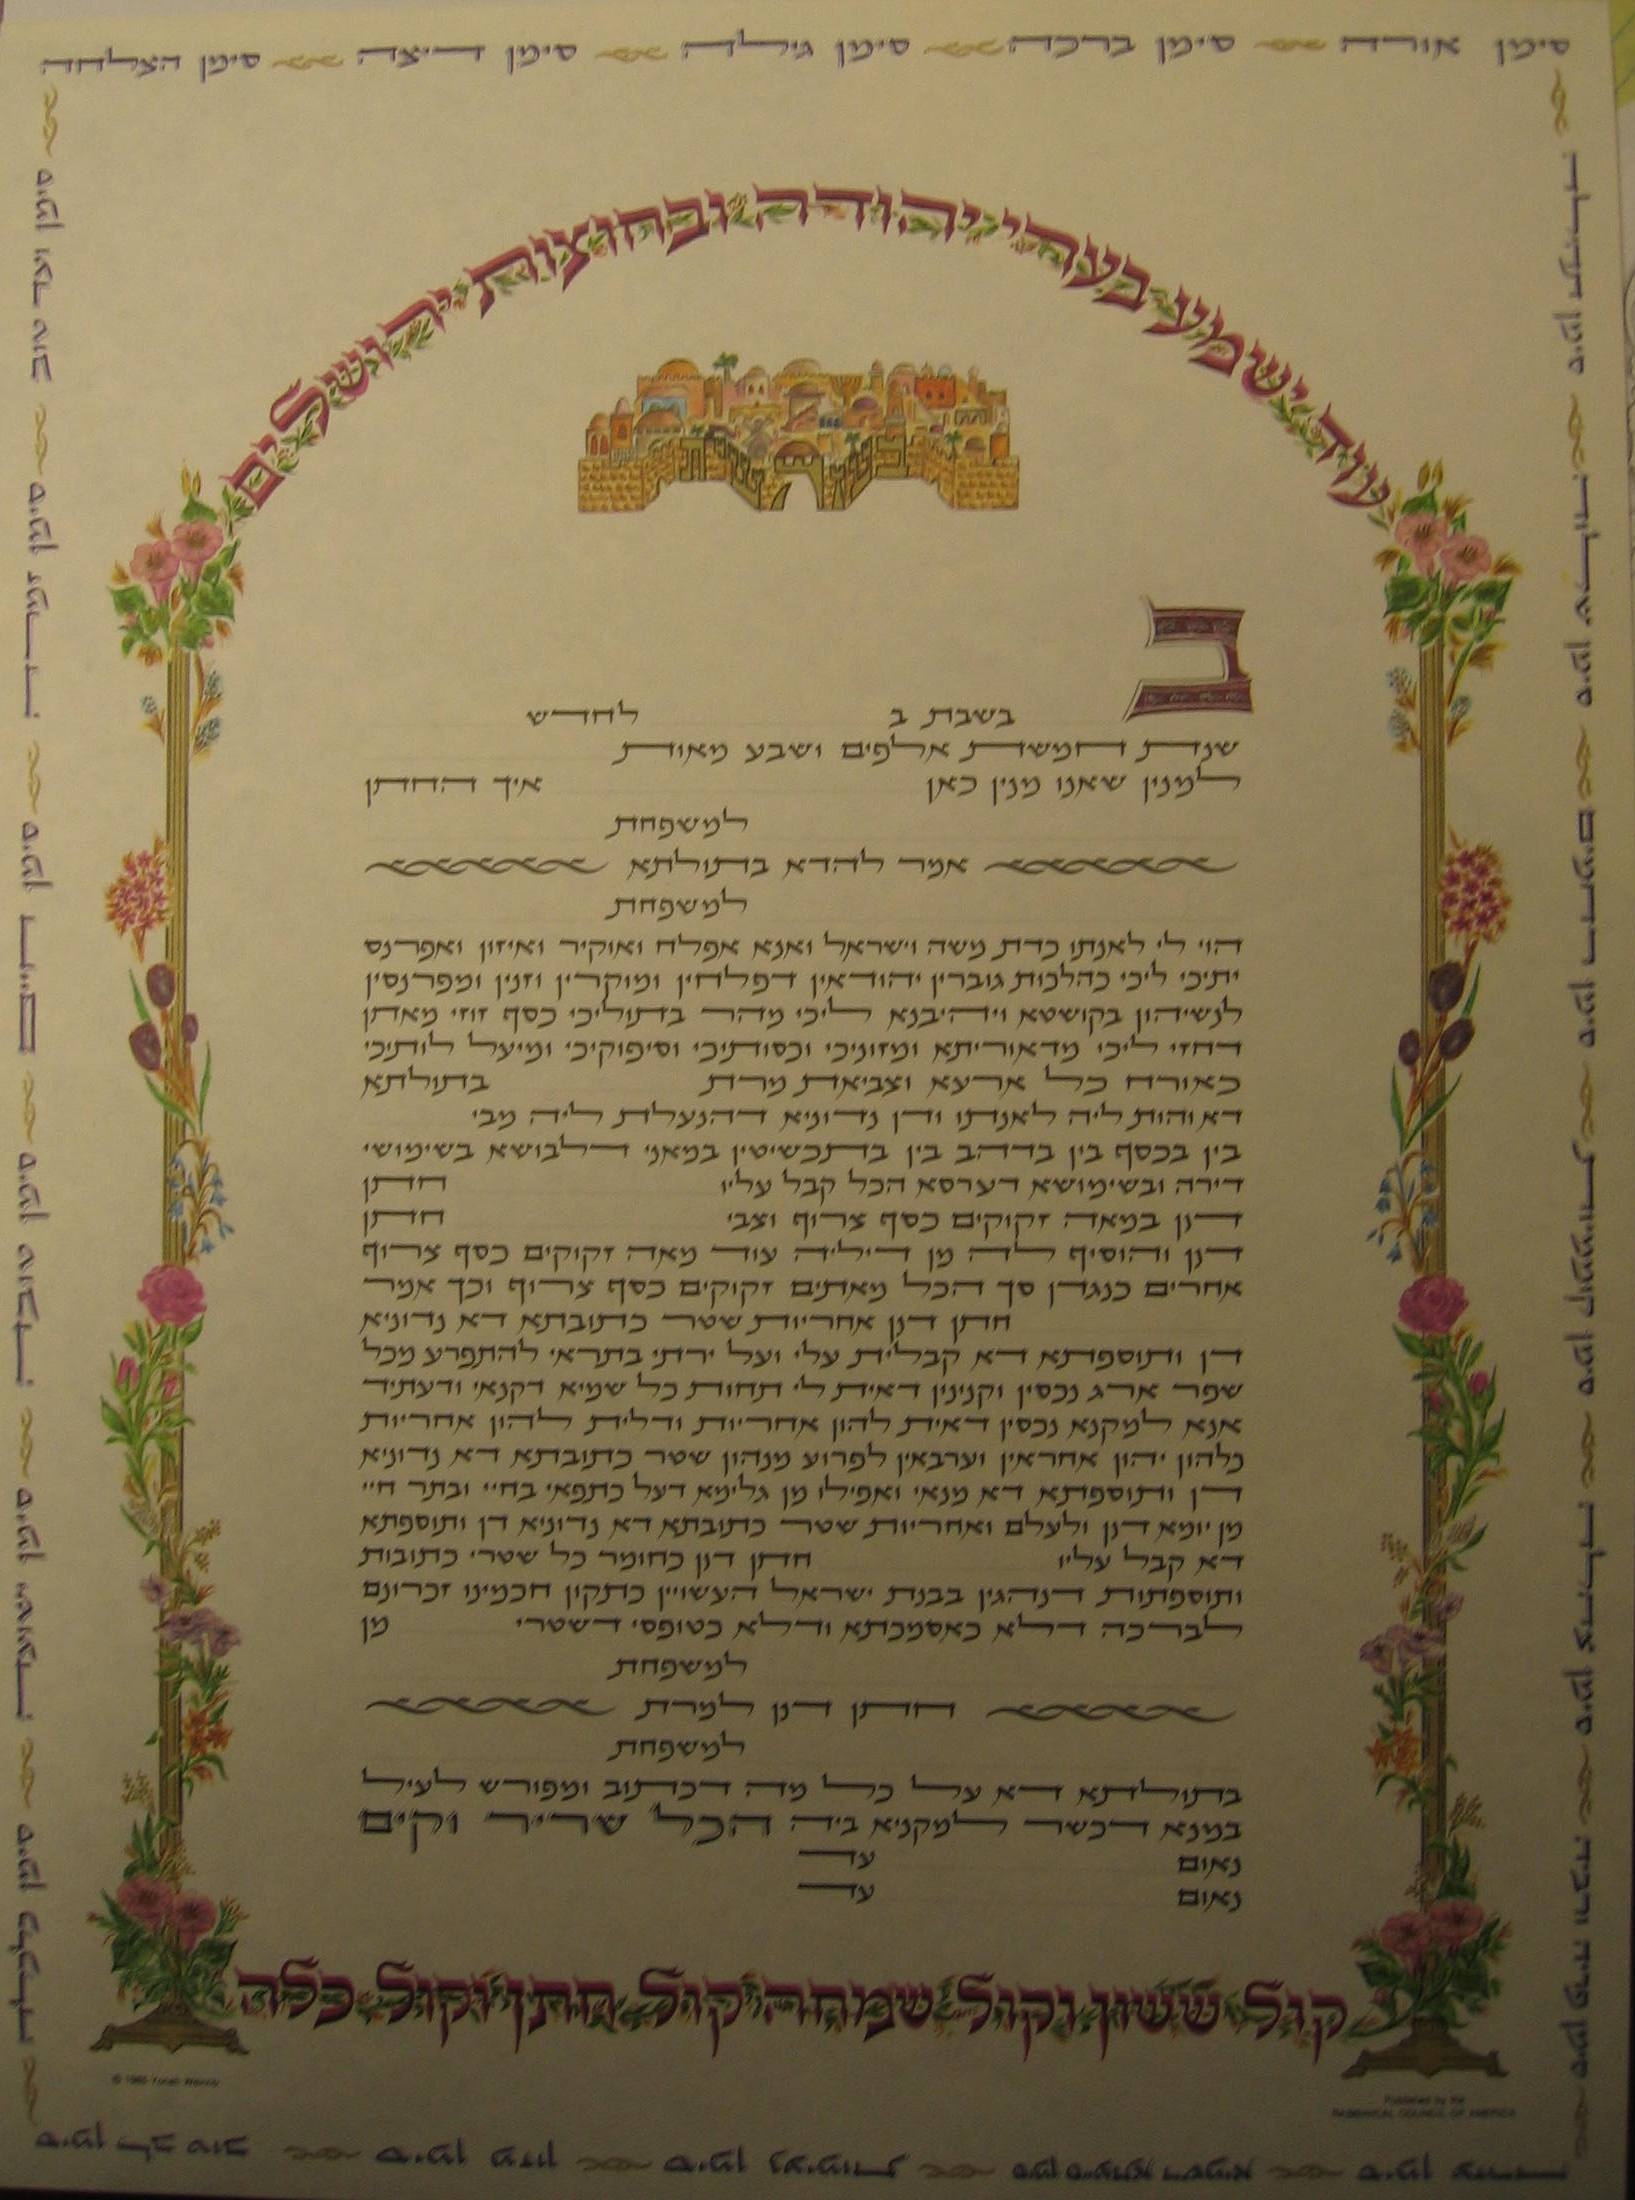 סימן אורה סימן ברכה סימן גילה סימן דיצה סימן הצלחה
עוד ישמע בערי יהודה ובחוצות ירושלים
ב
בשבת ב לחדש
שנת חמשת אלפים ושבע מאות
למנין שאנו מנין כאן איך החתן
למשפחת
אמר להדא בתולתא
למשפחת
הוי לי לאנתו כדת משה וישראל ואנא אפלח ואוקיר ואיזון ואפרנס
יתיכי ליכי כהלכות גוברין יהודאין דפלחין ומוקרין וזנין ומפרנסין
לנשיהון בקושטא ויהיבנא ליכי מהר בתוליכי כסף זוזי מאתן
דחזי ליכי מדאוריתא ומזוניכי וכסותיכי וסיפוקיכי ומיעל לותיכי
כאורח כל ארעא וצביאת מרת בתולתא
דא והות ליה לאנתו ודן נדוניא דהנעלת ליה מבי
בין בכסף בין בדהב בין בתכשיטין במאני דלבושא בשימושי
דירה ובשימושא דערסא הכל קבל עליו חתן
דנן במאה זקוקים כסף צרוף וצבי חתן
דנן והוסיף לה מן דיליה עוד מאה זקוקים כסף צרוף
אחרים כנגדן סך הכל מאתים זקוקים כסף צרוף וכך אמר
חתן דנן אחריות שטר כתובתא דא נדוניא
דן ותוספתא דא קבלית עלי ועל ירתי בתראי להתפרע מכל
שפר ארג נכסין וקנינין דאית לי תחות כל שמיא דקנאי ודעתיד
אנא למקנא נכסין דאית להון אחריות ודלית להון אחריות
כלהון יהון אחראין וערבאין לפרוע מנהון שטר כתובתא דא נדוניא
דן ותוספתא דא מנאי ואפילו מן גלימא דעל כתפאי בחיי ובתר חיי
מן יומא דנן ולעלם ואחריות שטר כתובתא דא נדוניא דן ותוספתא
דא קבל עליו חתן דנן כחומר כל שטרי כתובות
ותוספתות דנהגין בבנת ישראל העשויין כתקון חכמינו זכרונם
לברכה דלא כאסמכתא ודלא כטופסי דשטרי מן
למשפחת
חתן דנן למרת
למשפחת
בתולתא דא על כל מה דכתוב ומפורש לעיל
במנא דכשר למקניא ביה הכל שריר וקים
נאום עד
נאום עד
קול ששון וקול שמחה קול חתן וקול כלה
Published by the
RABBINICAL COUNCIL OF AMERICA